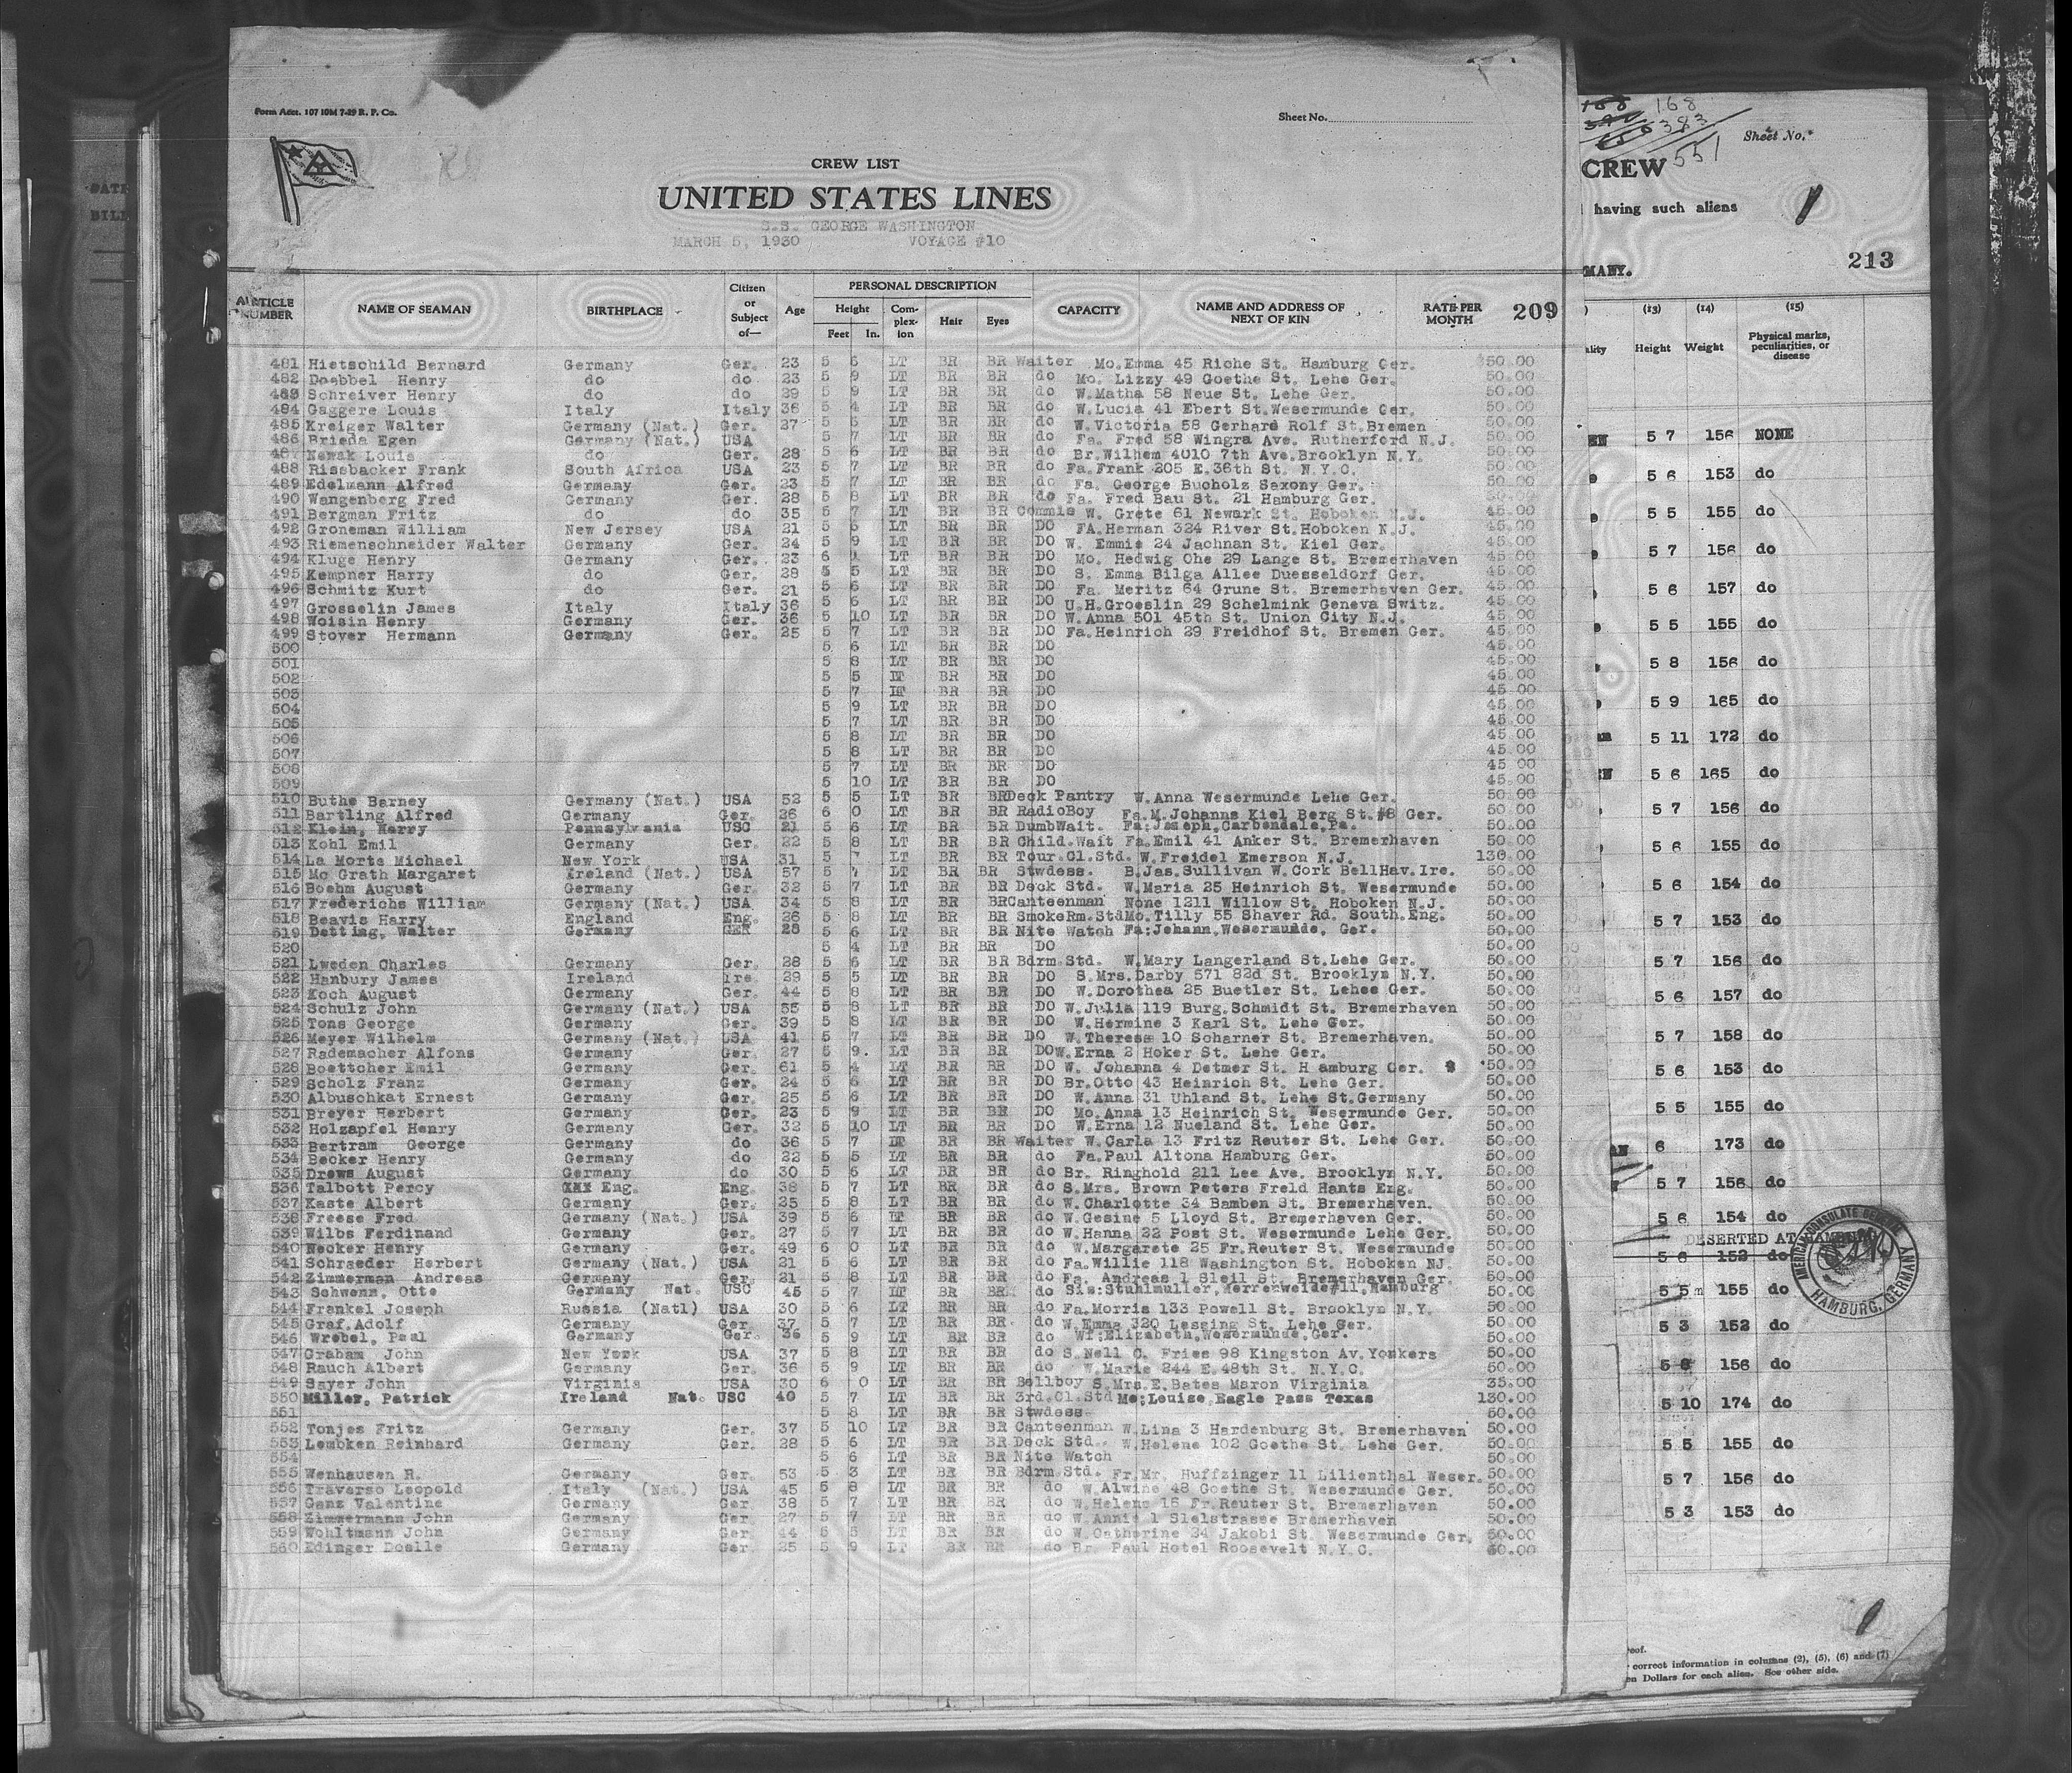 Form Acct. 107 10M 7-29 R. P. Co.
Sheet No.
CREW LIST
UNITED STATES LINES
S.S. GEORGE WASHINGTON
MARCH 5, 1930 VOYAGE #10
ARTICLE NUMBER NAME OF SEAMAN BIRTHPLACE Citizen or Subject of— Age PERSONAL DESCRIPTION Height Feet In. Complexion Hair Eyes CAPACITY NAME AND ADDRESS OF NEXT OF KIN RATE PER MONTH 209
481 Hietschild Bernard Germany Ger. 23 5 6 LT BR BR Waiter Mo.Emma 45 Riche St. Hamburg Ger. $50.00
482 Doebbel Henry do do 23 5 9 LT BR BR do Mo. Lizzy 49 Goethe St. Lehe Ger. 50.00
483 Schreiver Henry do do 29 5 9 LT BR BR do W.Matha 58 Neue St. Lehe Ger. 50.00
484 Gaggere Louis Italy Italy 36 5 4 LT BR BR do W.Lucia 41 Ebert St.Wesermunde Ger. 50.00
485 Kreiger Walter Germany (Nat.) Ger. 27 5 6 LT BR BR do W.Victoria 58 Gerhard Rolf St.Bremen 50.00
486 Brieda Egen Germany (Nat.) USA 5 7 LT BR BR do Fa. Fred 58 Wingra Ave. Rutherford N.J. 50.00
487 Newak Louis do Ger. 28 5 6 LT BR BR do Br.Wilhem 4010 7th Ave.Brooklyn N.Y. 50.00
488 Rissbacker Frank South Africa USA 23 5 7 LT BR BR do Fa.Frank 205 E.36th St. N.Y.C. 50.00
489 Edelmann Alfred Germany Ger. 23 5 7 LT BR BR do Fa. George Bucholz Saxony Ger. 50.00
490 Wangenberg Fred Germany Ger. 28 5 8 LT BR BR do Fa. Fred Bau St. 21 Hamburg Ger.
491 Bergman Fritz do do 35 5 7 LT BR BR Commis W. Grete 61 Newark St. Hoboken N.J. 45.00
492 Groneman William New Jersey USA 21 5 6 LT BR BR DO FA.Herman 324 River St.Hoboken N.J. 45.00
493 Riemenschneider Walter Germany Ger. 24 5 9 LT BR BR DO W. Emmie 24 Jachnan St. Kiel Ger. 45.00
494 Kluge Henry Germany Ger. 23 6 1 LT BR BR DO Mo. Hedwig Ohe 29 Lange St. Bremerhaven 45.00
495 Kempner Harry do Ger. 28 5 5 LT BR BR DO S. Emma Bilga Allee Duesseldorf Ger. 45.00
496 Schmitz Kurt do Ger. 21 5 6 LT BR BR DO Fa. Meritz 64 Grune St. Bremerhaven Ger. 45.00
497 Grosselin James Italy Italy 36 5 6 LT BR BR DO U.H.Groeslin 29 Schelmink Geneva Switz. 45.00
498 Woisin Henry Germany Ger. 36 5 10 LT BR BR DO W.Anna 501 45th St. Union City N.J. 45.00
499 Stover Hermann Germany Ger. 25 5 7 LT BR BR DO Fa.Heinrich 29 Freidhof St. Bremen Ger. 45.00
500 5 6 LT BR BR DO 45.00
501 5 8 LT BR BR DO 45.00
502 5 5 LT BR BR DO 45.00
503 5 7 LT BR BR DO 45.00
504 5 9 LT BR BR DO 45.00
505 5 7 LT BR BR DO 45.00
506 5 8 LT BR BR DO 45.00
507 5 8 LT BR BR DO 45.00
508 5 7 LT BR BR DO 45 00
509 5 10 LT BR BR DO 45.00
510 Buthe Barney Germany (Nat.) USA 52 5 5 LT BR BR Deck Pantry W.Anna Wesermunde Lehe Ger. 50 00
511 Bartling Alfred Germany Ger. 26 6 0 LT BR BR RadioBoy Fa.M.Johanns Kiel Berg St.#8 Ger. 50.00
512 Klein, Harry Pennsylvania USC 21 5 6 LT BR BR DumbWait. Fa:Joseph,Carbondale,Pa. 50.00
513 Kohl Emil Germany Ger. 22 5 8 LT BR BR Child.Wait Fa.Emil 41 Anker St. Bremerhaven 50.00
514 La Morte Michael New York USA 31 5 LT BR BR Tour.Cl.Std. W.Freidel Emerson N.J. 130.00
515 Mc Grath Margaret Ireland (Nat.) USA 57 5 LT BR BR Stwdess. B.Jas.Sullivan W.Cork BellHav.Ire. 50.00
516 Boehm August Germany Ger. 32 5 7 LT BR BR Deck Std. W.Maria 25 Heinrich St. Wesermunde 50.00
517 Frederichs William Germany (Nat.) USA 34 5 8 LT BR BR Canteenman None 1211 Willow St. Hoboken N.J. 50.00
518 Beavis Harry England Eng. 26 5 8 LT BR BR SmokeRm.Std Mo.Tilly 55 Shaver Rd. South.Eng. 50.00
519 Detting, Walter Germany GER 28 5 6 LT BR BR Nite Watch Fa:Johann,Wesermunde, Ger. 50.00
520 5 4 LT BR BR DO 50.00
521 Lweden Charles Germany Ger. 28 5 6 LT BR BR Bdrm.Std. W.Mary Langerland St.Lehe Ger. 50.00
522 Hanbury James Ireland Ire. 29 5 5 LT BR BR DO S.Mrs.Darby 571 82d St. Brooklyn N.Y. 50.00
523 Koch August Germany Ger. 44 5 8 LT BR BR DO W.Dorothea 25 Buetler St. Lehee Ger. 50.00
524 Schulz John Germany (Nat.) USA 55 5 8 LT BR BR DO W.Julia 119 Burg.Schmidt St. Bremerhaven 50.00
525 Tons George Germany Ger. 39 5 8 LT BR BR DO W.Hermine 3 Karl St. Lehe Ger. 50.00
526 Meyer Wilhelm Germany (Nat.) USA 41 5 7 LT BR BR DO W.Theresa 10 Scharner St. Bremerhaven. 50.00
527 Rademacher Alfons Germany Ger. 27 5 9. LT BR BR DO W.Erna 2 Hoker St. Lehe Ger. 50.00
528 Boettcher Emil Germany Ger. 61 5 4 LT BR BR DO W. Johanna 4 Detmer St. H amburg Ger. 50.00
529 Scholz Franz Germany Ger. 24 5 6 LT BR BR DO Br.Otto 43 Heinrich St. Lehe Ger. 50.00
530 Albuschkat Ernest Germany Ger. 25 5 6 LT BR BR DO W.Anna 31 Uhland St. Lehe St.Germany 50.00
531 Breyer Herbert Germany Ger. 23 5 9 LT BR BR DO Mo.Anna 13 Heinrich St. Wesermunde Ger. 50.00
532 Holzapfel Henry Germany Ger. 32 5 10 LT BR BR DO W.Erna 12 Nueland St. Lehe Ger. 50.00
533 Bertram George Germany do 36 5 7 LT BR BR Waiter W.Carla 13 Fritz Reuter St. Lehe Ger. 50.00
534 Becker Henry Germany do 22 5 5 LT BR BR do Fa.Paul Altona Hamburg Ger. 50.00
535 Drews August Germany do 30 5 6 LT BR BR do Br. Ringhold 211 Lee Ave. Brooklyn N.Y. 50.00
536 Talbott Percy XXX Eng. Eng. 38 5 7 LT BR BR do S.Mrs. Brown Peters Freld Hants Eng. 50.00
537 Kaste Albert Germany Ger. 25 5 8 LT BR BR do W.Charlotte 34 Bamben St. Bremerhaven. 50.00
538 Freese Fred Germany (Nat.) USA 39 5 6 LT BR BR do W.Gesine 5 Lloyd St. Bremerhaven Ger. 50.00
539 Wilbs Ferdinand Germany Ger. 27 5 7 LT BR BR do W.Hanna 22 Post St. Wesermunde Lehe Ger. 50.00
540 Necker Henry Germany Ger. 49 6 0 LT BR BR do W.Margarete 25 Fr.Reuter St. Wesermunde 50.00
541 Schraeder Herbert Germany (Nat.) USA 21 5 6 LT BR BR do Fa.Willie 118 Washington St. Hoboken NJ. 50.00
542 Zimmerman Andreas Germany Ger. 21 5 8 LT BR BR do Fa. Andreas 1 Sleil St. Bremerhaven Ger. 50.00
543 Schwenn, Otto Germany Nat. USC 45 5 7 LT BR BR do Sis:Stuhlmuller,Herrerweide#11,Hamburg 50.00
544 Frankel Joseph Russia (Natl) USA 30 5 6 LT BR BR do Fa.Morris 133 Powell St. Brooklyn N.Y. 50.00
545 Graf.Adolf Germany Ger. 37 5 7 LT BR BR do W.Emma 320 Lessing St. Lehe Ger. 50.00
546 Wrobel, Paul Germany Ger. 36 5 9 LT BR BR do Wf:Elizabeth,Wesermunde,Ger. 50.00
547 Graham John New York USA 37 5 8 LT BR BR do S.Nell C. Fries 98 Kingston Av.Yonkers 50.00
548 Rauch Albert Germany Ger. 36 5 9 LT BR BR do W.Marie 244 E.48th St. N.Y.C. 50.00
549 Sayer John Virginia USA 30 6 0 LT BR BR Bellboy S.Mrs.E.Bates Maron Virginia 35.00
550 Miller, Patrick Ireland Nat. USC 40 5 7 LT BR BR 3rd.Cl.Std Mo:Louise,Eagle Pass Texas 130.00
551 5 8 LT BR BR Stwdess 50.00
552 Tonjes Fritz Germany Ger. 37 5 10 LT BR BR Canteenman W.Lina 3 Hardenburg St. Bremerhaven 50.00
553 Lembken Reinhard Germany Ger. 28 5 6 LT BR BR Deck Std. W.Helene 102 Goethe St. Lehe Ger. 50.00
554 5 6 LT BR BR Nite Watch 50.00
555 Wenhausen R. Germany Ger. 53 5 3 LT BR BR Bdrm.Std. Fr.Mr. Huffzinger 11 Lilienthal Weser. 50.00
556 Traverso Leopold Italy (Nat.) USA 45 5 8 LT BR BR do W.Alwine 48 Goethe St. Wesermunde Ger. 50.00
557 Ganz Valentine Germany Ger. 38 5 7 LT BR BR do W.Helene 16 Fr.Reuter St. Bremerhaven 50.00
558 Zimmermann John Germany Ger. 27 5 7 LT BR BR do W.Annie 1 Slelstrasse Bremerhaven 50.00
559 Wohltmann John Germany Ger. 44 5 5 LT BR BR do W.Catherine 24 Jakobi St. Wesermunde Ger. 50.00
560 Edinger Doelle Germany Ger. 25 5 9 LT BR BR do Br. Paul Hotel Roosevelt N.Y.C. 60.00
168
383
551
Sheet No.
CREW
having such aliens
MANY.
213
(13) (14) (15)
Height Weight Physical marks, peculiarities, or disease
5 7 156 NONE
5 6 153 do
5 5 155 do
5 7 156 do
5 6 157 do
5 5 155 do
5 8 156 do
5 9 165 do
5 11 172 do
5 6 165 do
5 7 156 do
5 6 155 do
5 6 154 do
5 7 153 do
5 7 156 do
5 6 157 do
5 7 158 do
5 6 153 do
5 5 155 do
6 173 do
5 7 156 do
5 6 154 do
DESERTED AT HAMBURG
5 6 152 do
5 5 155 do
5 3 152 do
5 8 156 do
5 10 174 do
5 5 155 do
5 7 156 do
5 3 153 do
AMERICAN CONSULATE GENERAL
HAMBURG, GERMANY
correct information in columns (2), (5), (6) and (7)
Dollars for each alien. See other side.